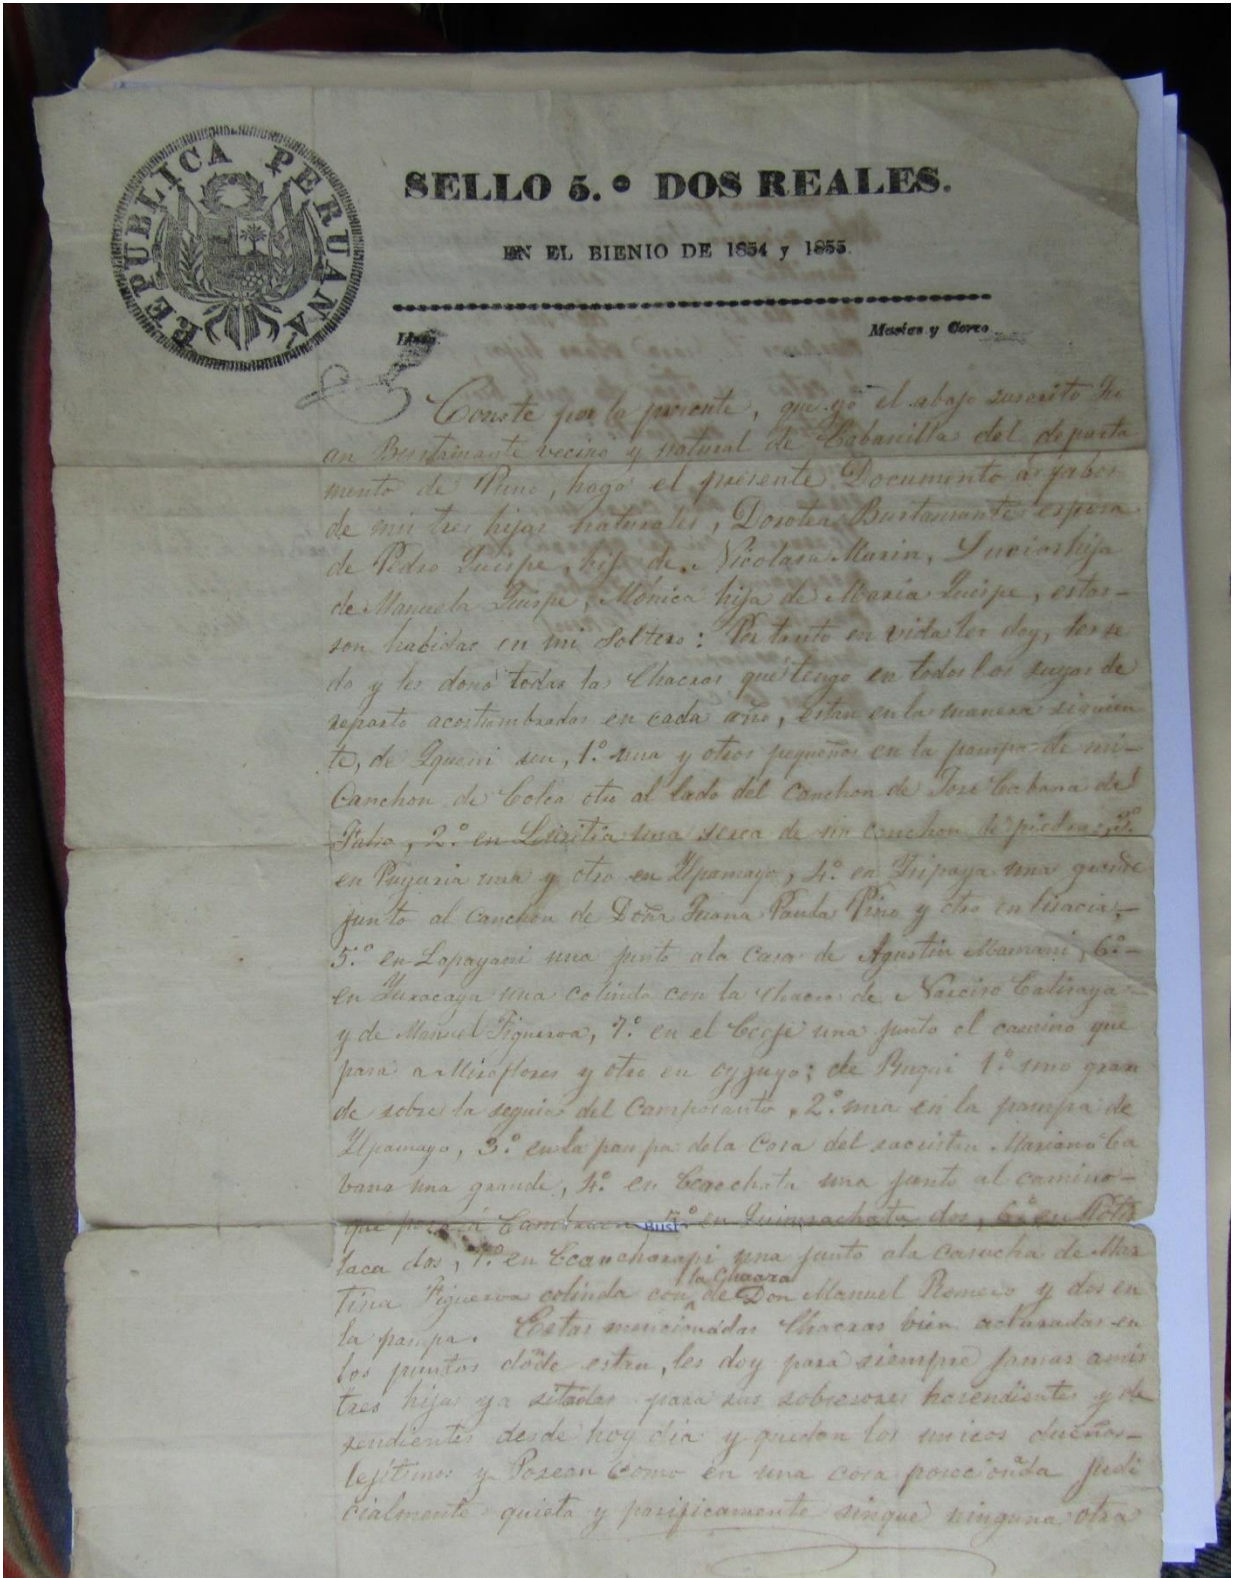 REPUBLICA PERUANA
SELLO 5.º DOS REALES.
EN EL BIENIO DE 1854 y 1855.
Masias y Cerro
Conste por la presente, que yó el abajo suscrito Ju
an Bustamante vecino y natural de Cabanilla del departa
mento de Puno, hago el presente Documento á fabor
de mis tres hijas naturales, Dorotea Bustamante esposa
de Pedro Quispe, hij de Nicolasa Marin, hija
de Manuela Quispe, Mónica hija de Maria Quispe, estas-
son habidas en mi Soltero: Por tanto en vida les doy, les se
do y les donó todas las Chacras que tengo en todos los suyos de
reparto acostumbrados en cada año, estan en la manera siguien
te, de son, 1.º una y otros pequeños en la pampa de mi-
Canchon de Colca otro al lado del canchon de José Cabana del
2.º en una serca de sin canchon de piedras, 3.º
en una y otro en Ypamayo, 4.º en una grande
junto al Canchon de Doña Juana Paula Pino y otro en
5.º en una junto ala Casa de Agustin Mamani, 6.º-
en una colinda con la Chacra de Narciso Catisaya-
y de Manuel Figueroa, 7.º en el una junto el camino que
pasa a Miraflores y otro en de 1.º uno gran
de sobre la seguia del Camposanto, 2.º una en la pampa de
Ypamayo, 3.º en la pampa dela Casa del sacristan Mariano Ca
bana una grande, 4.º en una junto al camino-
que 5.º en dos, 6.º en
laca dos, 7.º en una junto ala casucha de Mar
la Chacra
tina Figueroa colinda con de Don Manuel Romero y dos en
la pampa. Estas mencionadas Chacras bien en
los puntos donde estan, les doy para siempre jamas amis
tres hijas ya sitadas para sus sobresores herendientes y de
sendientes desde hoy dia y quedan los unicos dueños-
lejitimos y Posean Como en una cosa posecionada judi
cialmente quieta y pasificamente sinque ninguna otra